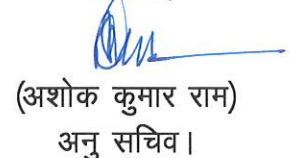 (अशोक कुमार राम)
अनु सचिव।